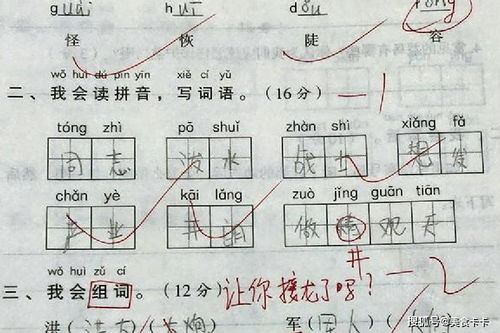 guài huī dǒu róng
怪 恢 陡 容
wǒ huì dú pīn yīn xiě cí yǔ
二、我会读拼音，写词语。（16分） 一1
tóng zhì pō shuǐ zhàn shì xiǎng fǎ
同志 泼水 战士 想发
chǎn yè kāi lǎng zuò jǐng guān tiān
产业 开朗 做 观天
井
wǒ huì zǔ cí
三、我会组词。（12分）让你接龙了吗？ 一2
洪（洪水）（ 军（军人）（
搜狐号@美食卡卡